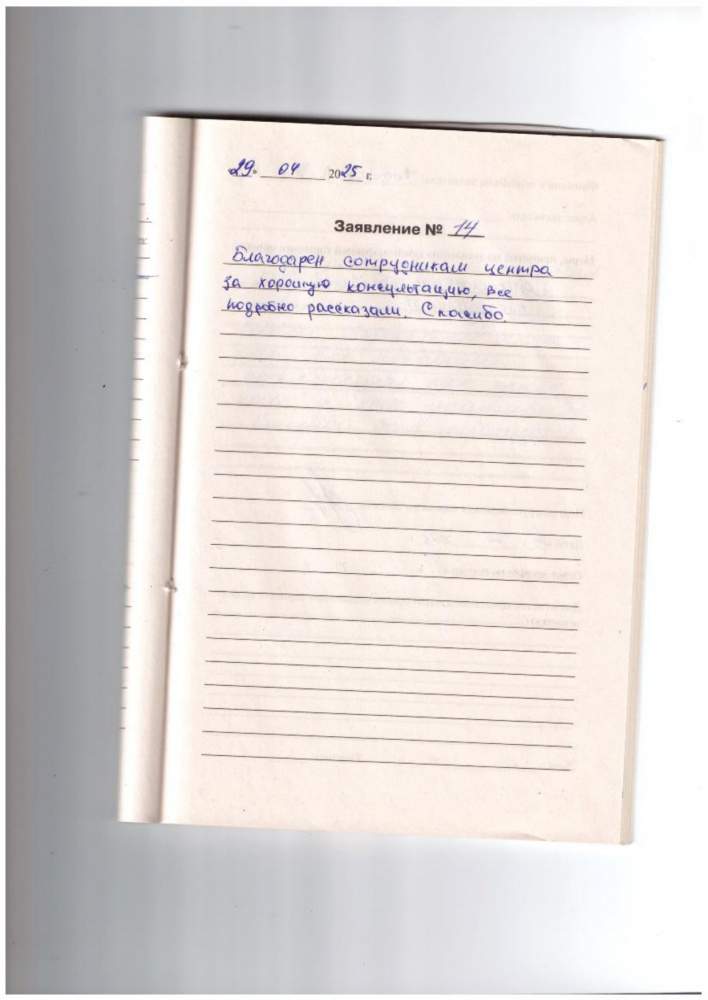 29" 04 2025 г.
Заявление № 14
Благодарен сотрудникам центра
за хорошую консультацию, все
подробно рассказали. Спасибо.